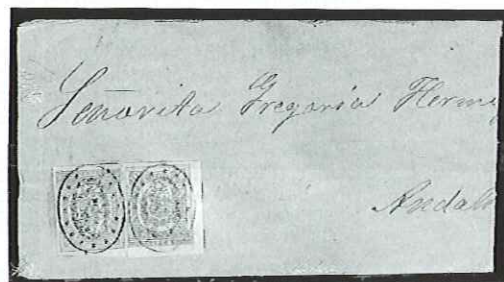 Señorita Gregoria Herm
Andal